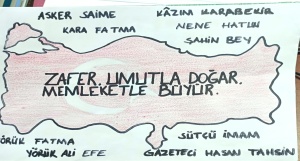 ASKER SAİME
KÂZIM KARABEKİR
KARA FATMA
NENE HATUN
ŞAHİN BEY
ZAFER, UMUTLA DOĞAR,
MEMLEKETLE BÜYÜR.
ÖRÜK FATMA
SÜTÇÜ İMAM
YÖRÜK ALİ EFE
GAZETECİ HASAN TAHSİN